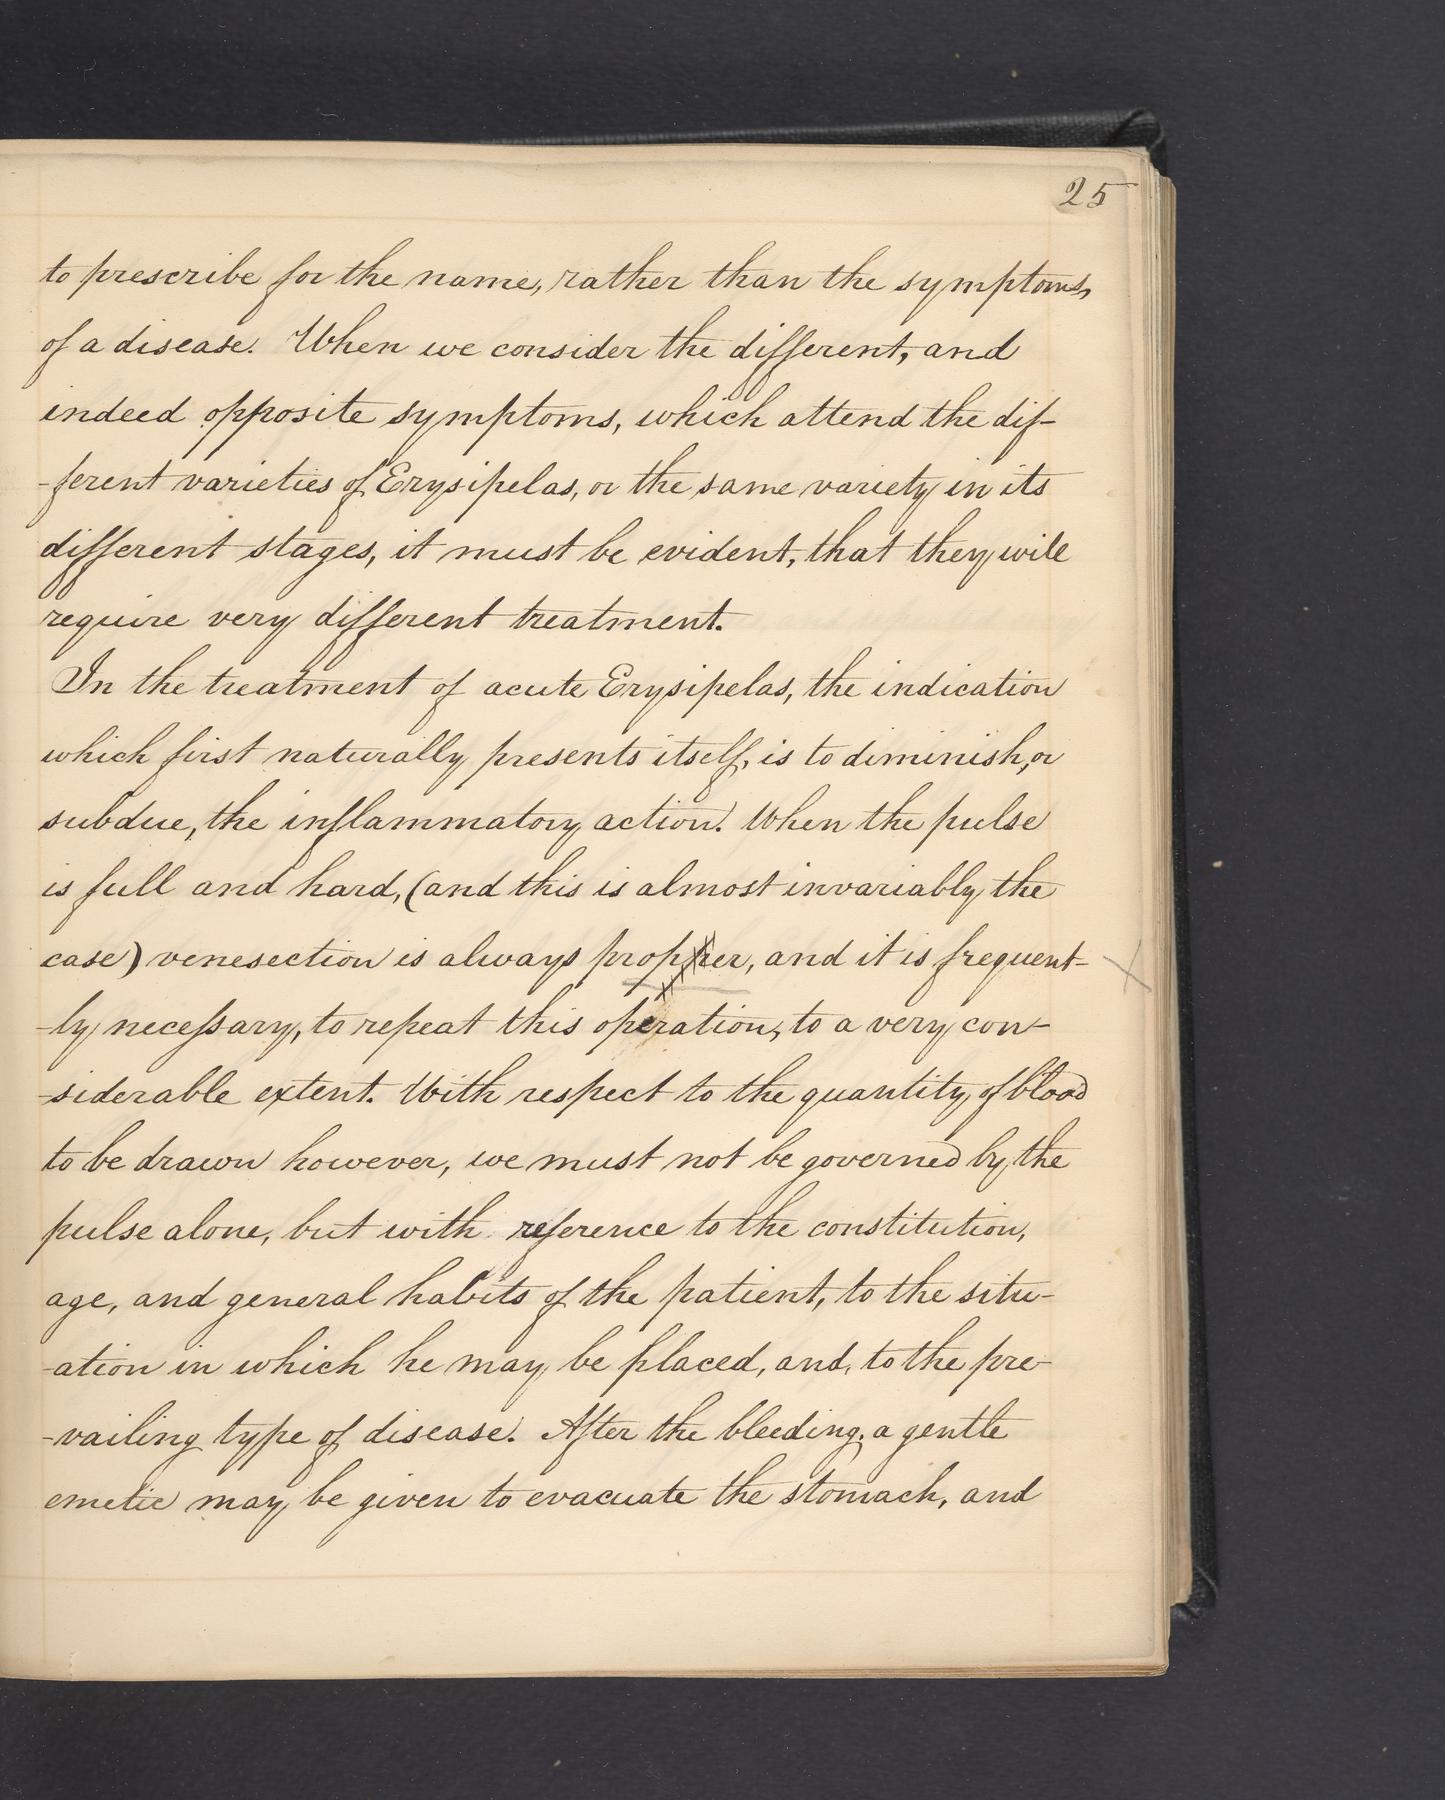 25
to prescribe for the name, rather than the symptoms,
of a disease. When we consider the different, and
indeed opposite symptoms, which attend the dif-
-ferent varieties of Erysipelas, or the same variety in its
different stages, it must be evident, that they will
require very different treatment.
In the treatment of acute Erysipelas, the indication
which first naturally presents itself, is to diminish, or
subdue, the inflammatory action. When the pulse
is full and hard, (and this is almost invariably the
case) venesection is always propper, and it is frequent-
-ly necessary, to repeat this operation, to a very con-
-siderable extent. With respect to the quantity of blood
to be drawn however, we must not be governed by the
pulse alone, but with reference to the constitution,
age, and general habits of the patient, to the situ-
-ation in which he may be placed, and, to the pre-
-vailing type of disease. After the bleeding, a gentle
emetic may be given to evacuate the stomach, and